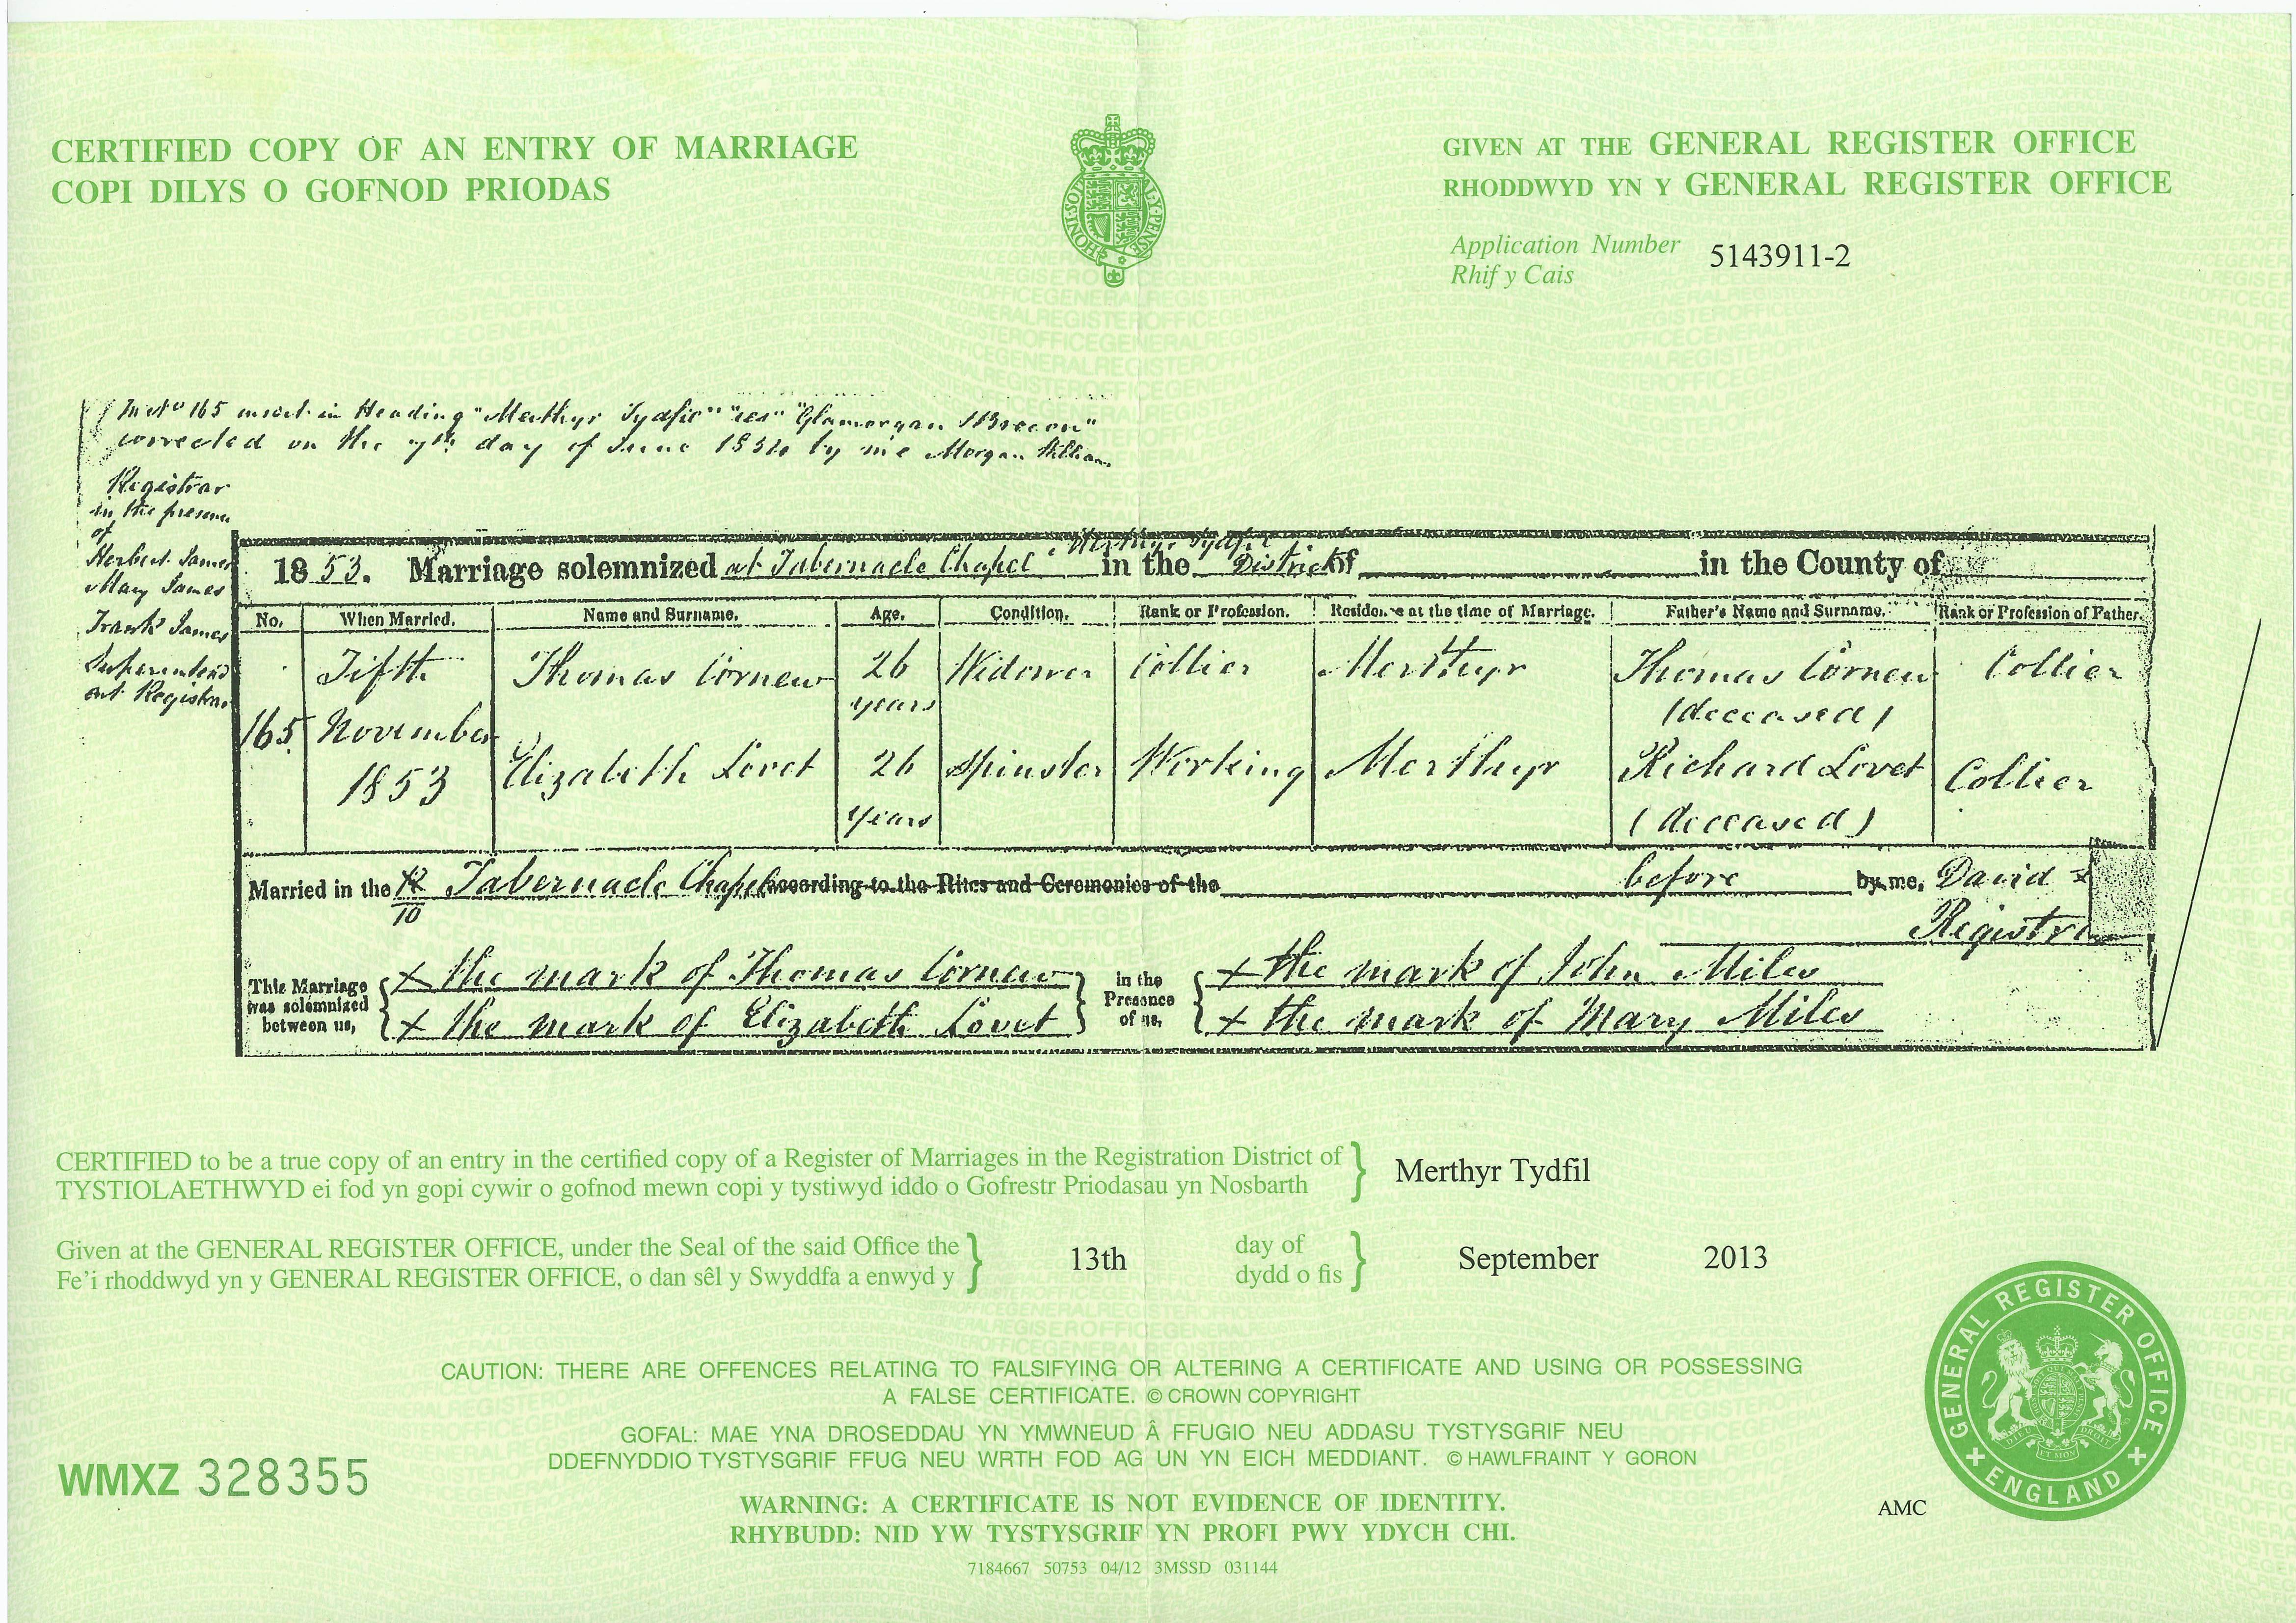 CERTIFIED COPY OF AN ENTRY OF MARRIAGE
COPI DILYS O GOFNOD PRIODAS
GIVEN AT THE GENERAL REGISTER OFFICE
RHODDWYD YN Y GENERAL REGISTER OFFICE
Application Number 5143911-2
Rhif y Cais
In No 165 insert in Heading "Merthyr Tydfil" "Glamorgan & Brecon"
corrected on the 7th day of June 1854 by me Morgan William
Registrar
in the presence
of
Herbert James
Mary James
Frank James
Superintend
ent Registrar
Merthyr Tydfil
1853. Marriage solemnized at Tabernacle Chapel in the District of in the County of
No. When Married. Name and Surname. Age. Condition. Rank or Profession. Residence at the time of Marriage. Father's Name and Surname. Rank or Profession of Father.
Fifth Thomas Cornew 26 years Widower Collier Merthyr Thomas Cornew (deceased) Collier
165 November
1853 Elizabeth Lovet 26 years Spinster Working Merthyr Richard Lovet (deceased) Collier
Married in the Tabernacle Chapel according to the Rites and Ceremonies of the before by me, David
10
Registrar
This Marriage was solemnized between us, x the mark of Thomas Cornew in the Presence of us, x the mark of John Miles
x the mark of Elizabeth Lovet x the mark of Mary Miles
CERTIFIED to be a true copy of an entry in the certified copy of a Register of Marriages in the Registration District of Merthyr Tydfil
TYSTIOLAETHWYD ei fod yn gopi cywir o gofnod mewn copi y tystiwyd iddo o Gofrestr Priodasau yn Nosbarth
Given at the GENERAL REGISTER OFFICE, under the Seal of the said Office the 13th day of September 2013
Fe'i rhoddwyd yn y GENERAL REGISTER OFFICE, o dan sêl y Swyddfa a enwyd y dydd o fis
CAUTION: THERE ARE OFFENCES RELATING TO FALSIFYING OR ALTERING A CERTIFICATE AND USING OR POSSESSING
A FALSE CERTIFICATE. © CROWN COPYRIGHT
GOFAL: MAE YNA DROSEDDAU YN YMWNEUD Â FFUGIO NEU ADDASU TYSTYSGRIF NEU
DDEFNYDDIO TYSTYSGRIF FFUG NEU WRTH FOD AG UN YN EICH MEDDIANT. © HAWLFRAINT Y GORON
WMXZ 328355
WARNING: A CERTIFICATE IS NOT EVIDENCE OF IDENTITY.
RHYBUDD: NID YW TYSTYSGRIF YN PROFI PWY YDYCH CHI.
AMC
7184667 50753 04/12 3MSSD 031144
GENERAL REGISTER OFFICE
ENGLAND